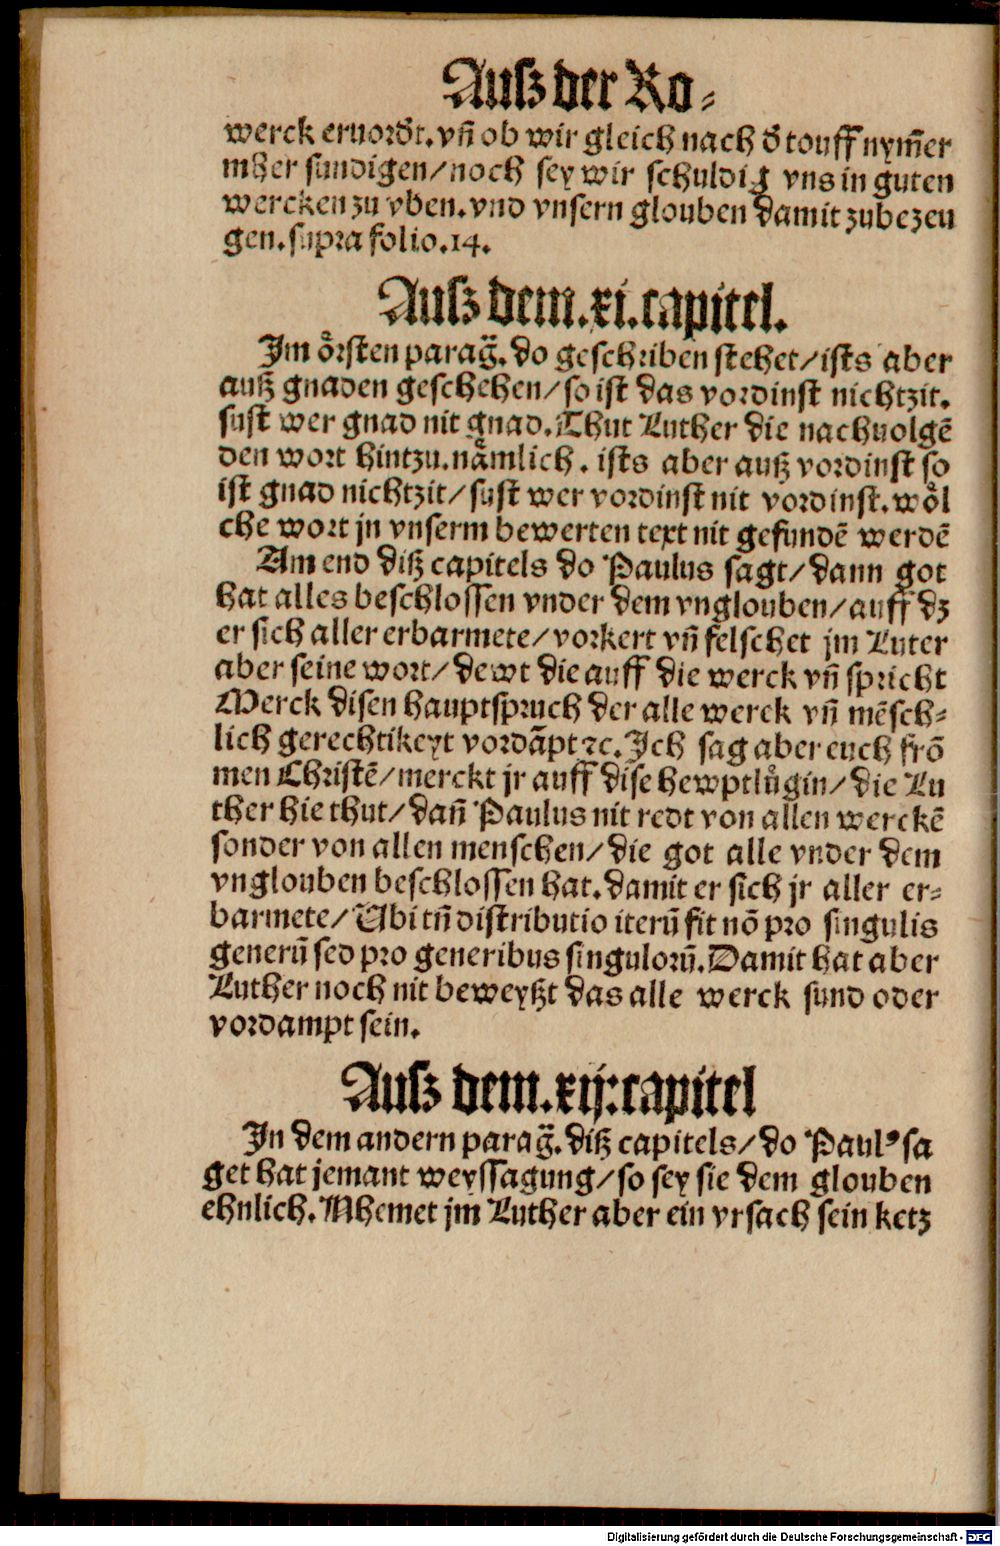 Ausz der Ro⸗
werck eruordt. vñ ob wir gleich nach đ touff nym̃er
mher sundigen/noch sey wir schuldig vns in guten
wercken zu vben. vnd vnsern glouben damit zubezeu
gen. supra folio. 14.
Ausz dem. xi. capitel.
Im oͤrsten parag̃. do geschriben stehet/ists aber
auß gnaden geschehen/so ist das vordinst nichtzit.
sust wer gnad nit gnad. Thut Luther die nachuolgẽ
den wort hintzu. naͤmlich. ists aber auß vordinst so
ist gnad nichtzit/sust wer vordinst nit vordinst. woͤl
che wort jn vnserm bewerten text nit gefundẽ werdẽ
Am end diß capitels do Paulus sagt/dann got
hat alles beschlossen vnder dem vnglouben/auff dz
er sich aller erbarmete/vorkert vñ felschet jm Luter
aber seine wort/dewt die auff die werck vñ spricht
Merck disen hauptspruch der alle werck vñ mẽsch⸗
lich gerechtikeyt vordãpt ⁊c. Ich sag aber euch frõ
men Christẽ/merckt jr auff dise hewptluͤgin/die Lu
ther hie thut/dañ Paulus nit redt von allen werckẽ
sonder von allen menschen/die got alle vnder dem
vnglouben beschlossen hat. damit er sich jr aller er⸗
barmete/Vbi tñ distributio iterũ fit nõ pro singulis
generũ sed pro generibus singulorũ. Damit hat aber
Luther noch nit beweyßt das alle werck sund oder
vordampt sein.
Ausz dem. xij: capitel
In dem andern parag̃. diß capitels/do Paulꝰ sa
get hat jemant weyssagung/so sey sie dem glouben
ehnlich. Nhemet jm Luther aber ein vrsach sein ketz
Digitalisierung gefördert durch die Deutsche Forschungsgemeinschaft - DFG